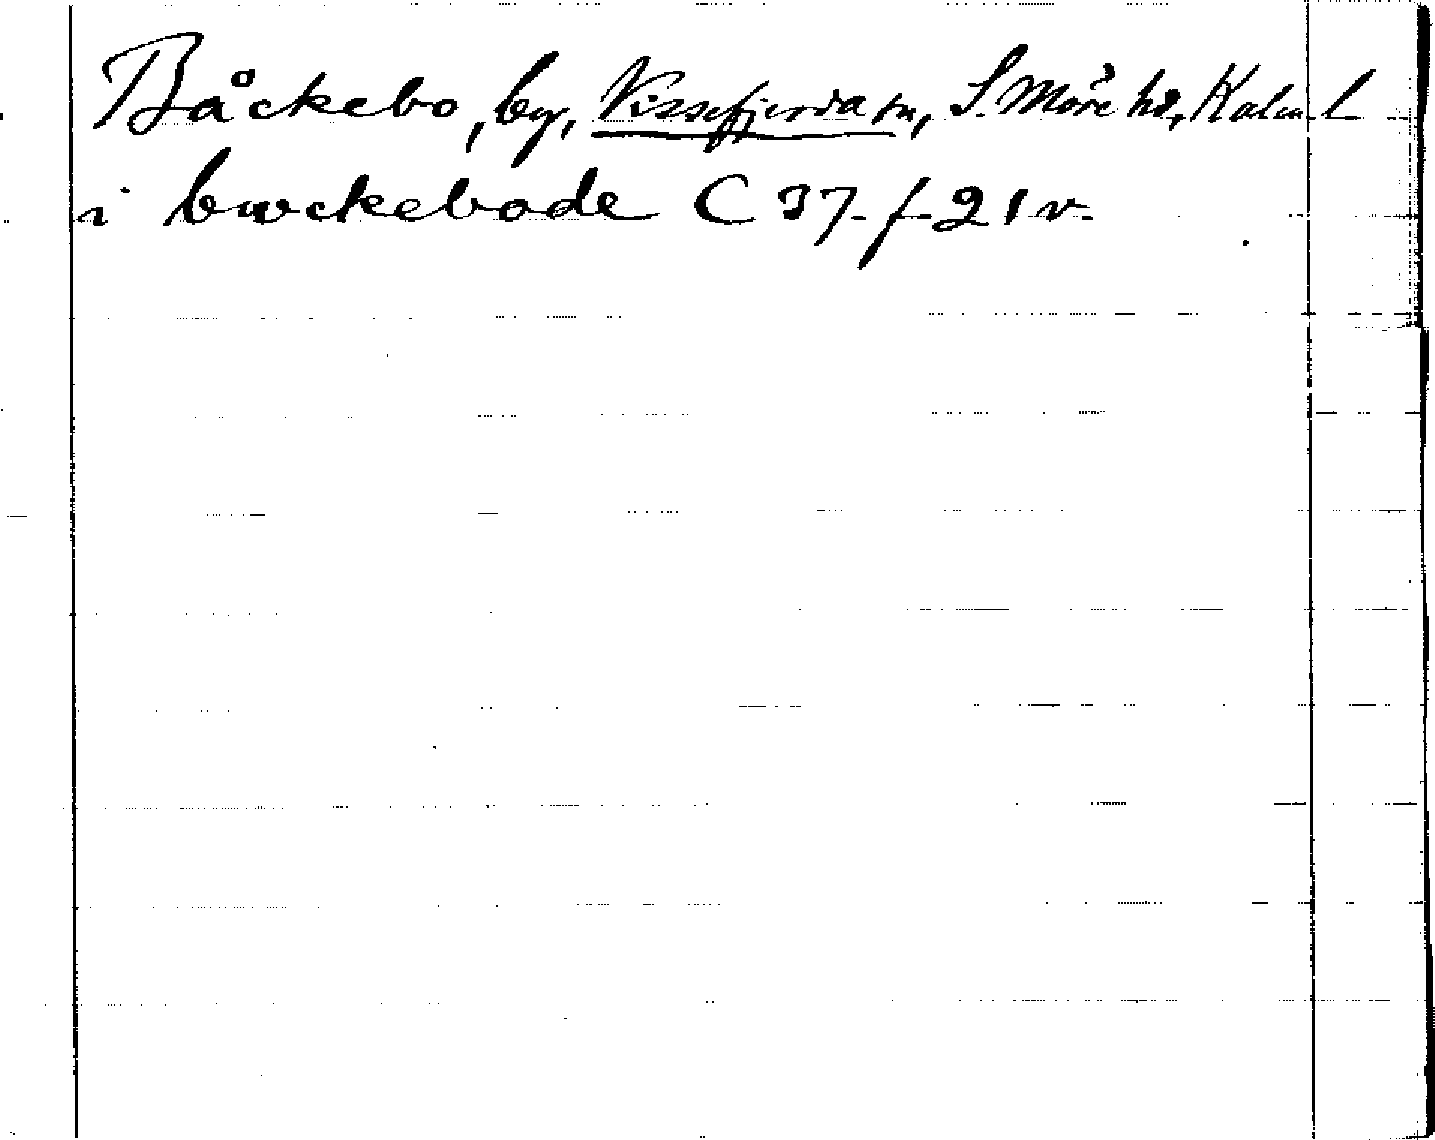 Båckebo, by, Vissefjerda sn, S. Möre hd, Kalm. l
i bwckebode C 37 f 21 v.